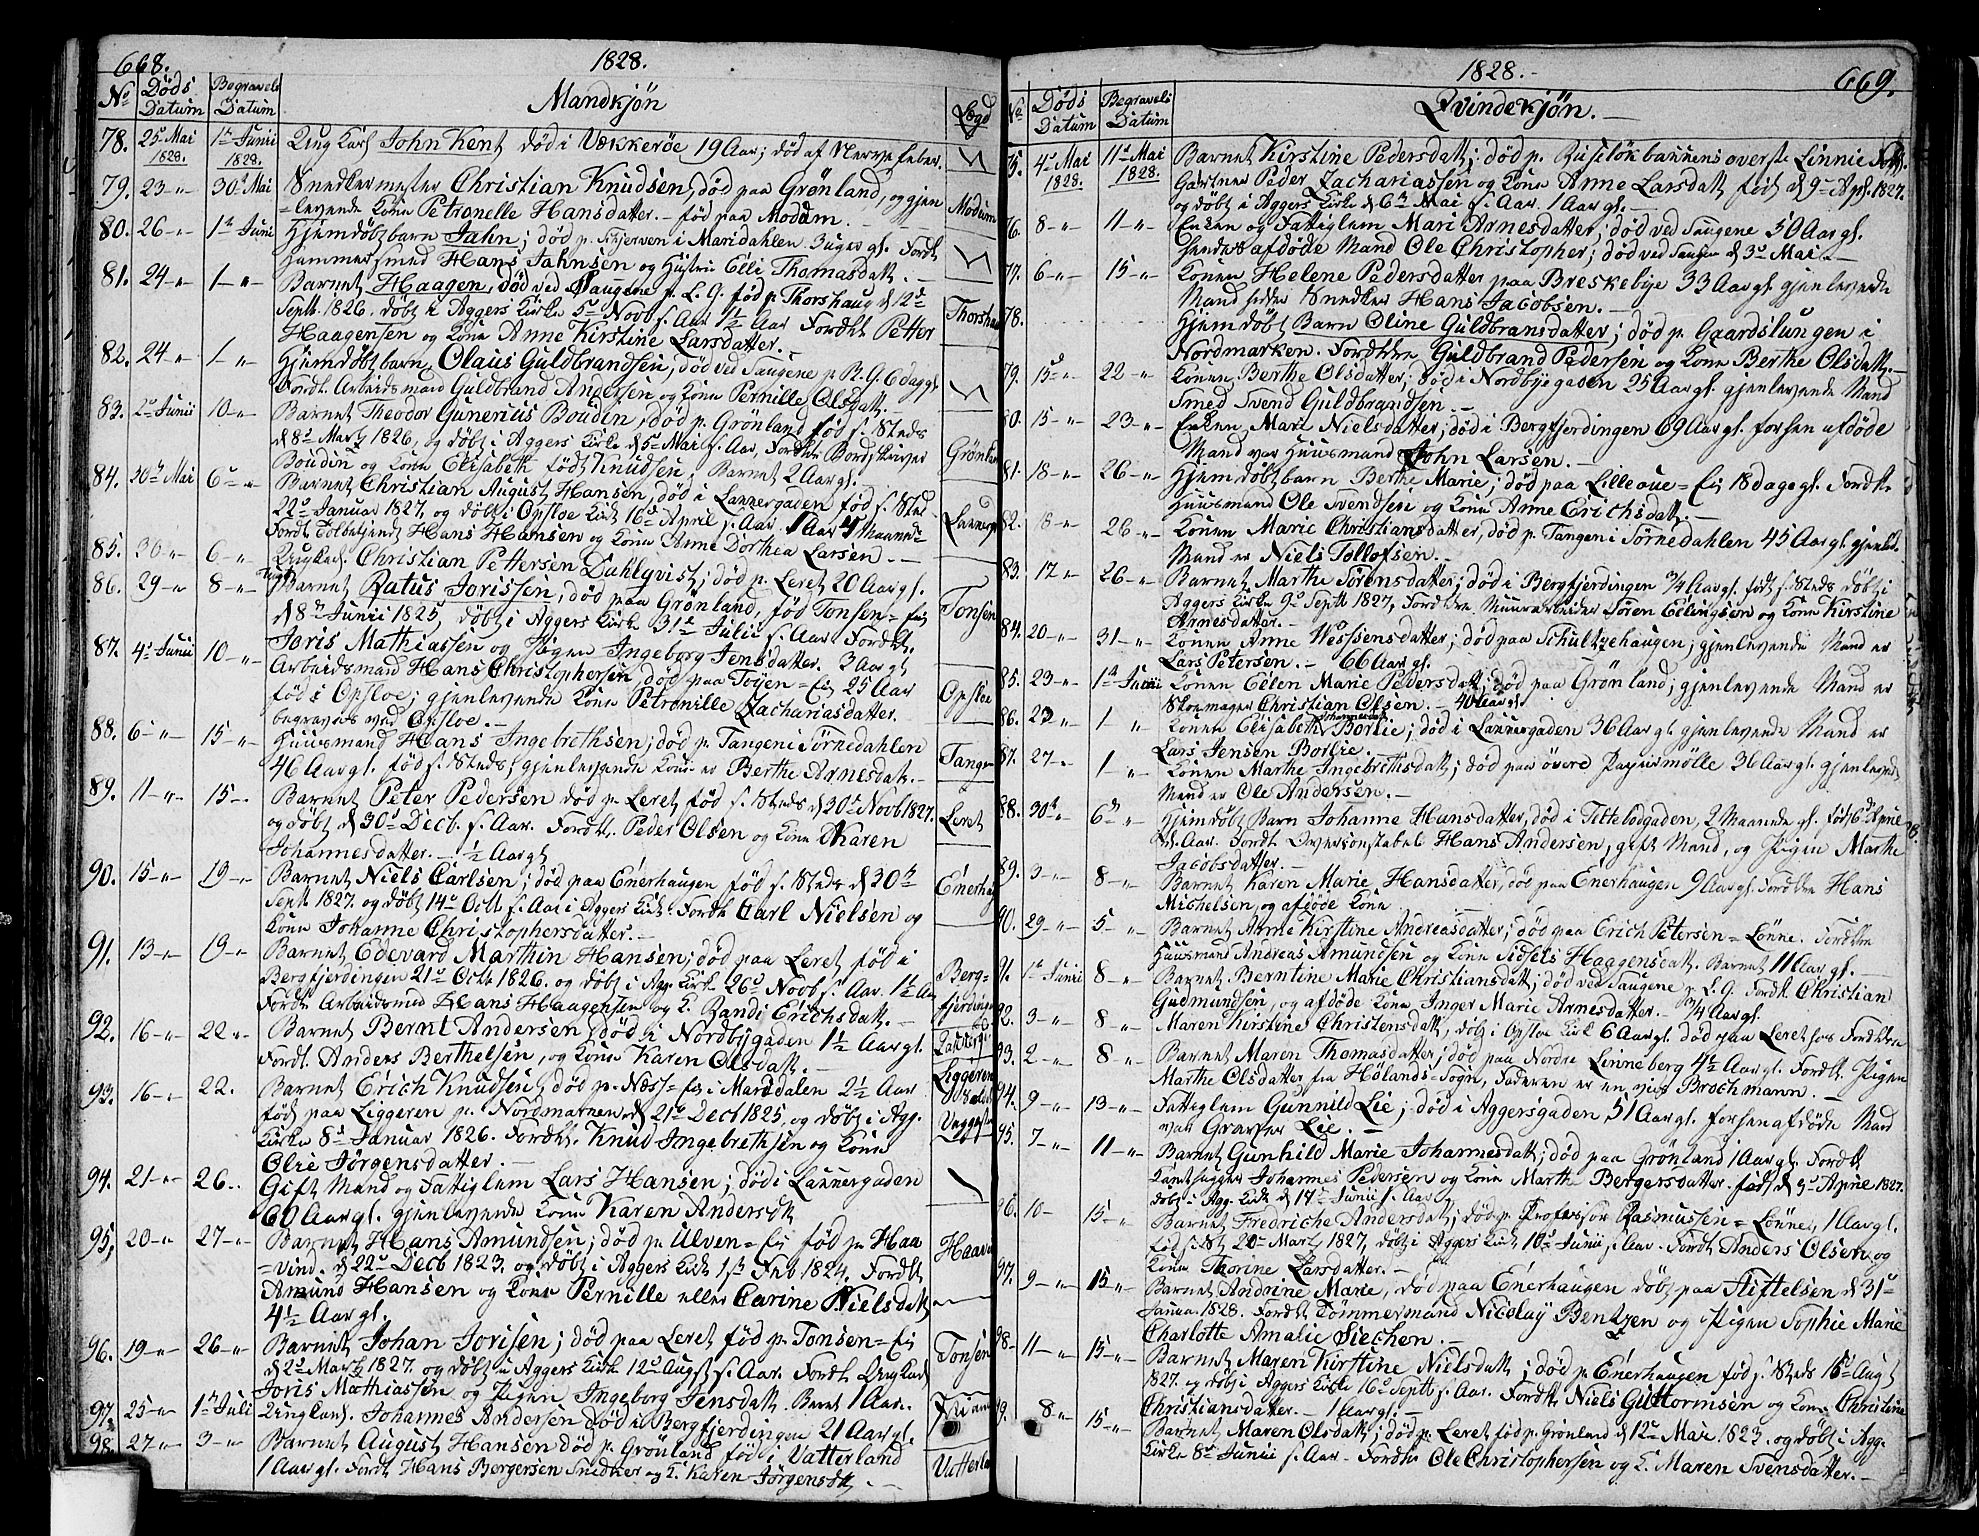 668.
1828.
No
Døds Datum
Begravels Datum
Mandkjøn
Lægd
78. 25de Mai 1828. 1te Junii 1828. Ung Karl John Kent død i Vækkerøe 19 Aar; død af Nerve Feber.
79. 23 -"- 30te Mai Snedkermester Christian Knudsen, død paa Grønland, og gjen
=levende Kone Petronelle Hansdatter. - fød paa Modum - Modum
80. 26 -"- 1te Junii Hjemdøbt barn Jahn; død p. Skjerven i Maridahlen 3 uger gl. Fordt
Hammersmed Hans Jahnsen og Hustrue Elli Thomasdatt. -
81. 24 -"- 1 -"- Barnet Haagen, død ved Saugene p. L. G. fød p. Thorshaug d. 12te
Septb. 1826. døbt i Aggers Kirke 5te Novb. s. Aar 1½ Aar Fordtt Petter Thorshau
Haagensen og Kone Anne Kirstine Larsdatter.
82. 24 " 1 " Hjemdøbt barn Olaus Guldbrandsen, død ved Saugene p. R. G. 6 dag gl.
Fordt. Arbeidsmand Guldbrand Andersen og Kone Pernille Olsdatt. -
83. 2de Junii 10 -"- Barnet Theodor Gunerius Boudin, død p. Grønland fød s. Steds
d. 8de Martz 1826, og døbt i Aggers Kirke d. 5te Mai s. Aar, Fordtt Bordskriver
Boudin og Kone Elisabeth født Knudsen, Barnet 2 Aar gl. Grønlan
84. 30te Mai 6 -"- Barnet Christian August Hansen, død i Lakkergaden fød s. Sted
22de Januar 1827, og døbt i Opsloe Kirk 16de April s. Aar. 1 Aar 4 Maaned
Fordt. Hans Hansen og Kone Anne Dorthea Larsen. -
85. 30 -"- 6 -"- Ungkarl. Christian Pettersen Dahlqvist; død p. Leret 20 Aar gl.
86. 29 -"- 8 -"- Barnet Ratus Jorissen, død paa Grønland, fød Tonsen = Eie Tonsen
d. 8de Junii 1825, døbt i Aggers Kirke 31te Julii s. Aar Fordtt.
Joris Mathiassen og Pigen Ingeborg Jensdatter. 3 Aar gl.
87. 4de Junii 10 -"- Arbeidsmand Hans Christophersen, død paa Tøyen = Eie 25 Aar
fød i Opsloe; gjenlevende Kone Petronille Zachariasdatter. Opsloe
begraves ved Opsloe. -
88. 6 -"- 15 -"- Huusmand Hans Ingebrethsen; død p. Tangen i Sørnedahlen
46 Aar gl. fød s. Steds, gjenlevende Kone er Berthe Arnesdatt. - Tangen
89. 11 -"- 15 -. Barnet Peter Pedersen død p. Leret fød s. Steds d. 30te Novb. 1827.
og døbt d. 30te Decb. s. Aar. Fordtt. Peder Olsen og Kone Karen Leret
Johannesdatter. - ½ Aar gl
90. 15 -"- 19 -"- Barnet Niels Carlsen; død paa Enerhaugen fød s. Steds d. 30te
Septb. 1827. og døbt 14de Octb. s. Aar i Aggers Kirk. Fordtt Carl Nielsen og Enerhau
Kone Johanne Christophersdatter. -
91. 13 -"- 19 -"- Barnet Edevard Marthin Hansen; død paa Leret fød i
Bergfjerdingen 21de Octb 1826. og døbt i Agg. Kirke 26de Novb. s. Aar. 1½ Aar Berg=
Fordtt Arbeidsmd Hans Haagensen og K. Randi Erichsdatt. - fjerdingen
92. 16 -"- 22 -"- Barnet Bernt Andersen, død i Nordbygaden 1½ Aar gl.
Fordt. Anders Berthelsen, og Kone Karen Olsdatt. -
93. 16 -"- 22. Barnet Erich Knudsen, død p. Næss = Eie i Mariddalen 2½ Aar Liggeren
fød paa Liggeren p. Nordmarken d. 21de Decb 1825, og døbt i Agg.
Kirke 8de Januar 1826. Fordtt. Knud Ingebrethsen og Kone
Olie Jørgensdatter. -
94. 21 -"- 26 .. Gift Mand og Fattiglem Lars Hansen; død i Lakkergaden
60 Aar gl. gjenlevende Kone Karen Andersdtt
95, 20 -"- 27 -"- Barnet Hans Amundsen; død p. Ulven = Eie fød p. Haa
=vind. d. 22de Decb 1823, og døbt i Aggers Kirk 1ste Feb 1824. Fordtt Haavi
Amund Hansen og Kone Pernille eller Carine Nielsdatt.
4½ Aar gl.
96. 19 -"- 26 -"- Barnet Johan Jorisen; død paa Leret fød p. Tonsen = Eie
d. 2de Martz 1827. og døbt i Aggers Kirke 12te Augst s. Aar. Fordt. Ungkarl Tonsen
Joris Mathiassen og Pigen Ingeborg Jensdatt. Barnet 1 Aar.
97. 25 -"- 1te Juli Ungkarl. Johannes Andersen død i Bergfjerdingen 21 Aar gl.
98. 27 -"- 3 -"- Barnet August Hansen død p. Grønland fød i Vatterland
1 Aar gl. Fordt Hans Bergersen Snedker og K. Karen Jørgensdtt. - Vatterla
1828.
669.
No
Døds Datum
Begravels Datum
Qvindekjøn. -
75. 4de Mai 1828. 11te Mai 1828. Barnet Kirstine Pedersdatt; død p. Ruseløkbakkens øverste Linnie Fordt.
Gartner Peder Zachariassen og Kone Anne Larsdatt født d. 9de Apl. 1827.
og døbt i Aggers Kirke d. 6te Mai s. Aar. 1 Aar gl. -
76. 8 -"- 11 -"- Enken og Fattiglem Mari Arnesdatter; død ved Saugene 50 Aar gl.
hendes afdøde Mand Ole Christopher; død ved Saugen d. 3de Mai. -
77. 6 -"- 15 -"- Konen Helene Pedersdatter paa Breskebye 33 Aar gl. gjenlevende
Mand Snedker Hans Jacobsen. -
78. Hjemdøbt Barn Oline Guldbransdatter; død p. Gaardslungen i
Nordmarken. Fordttre Guldbrand Pedersen og Kone Berthe Olsdatt. -
79. 15de " 22 -"- Konen Berthe Olsdatter; død i Nordbyegaden 25 Aar gl. gjenlevende Mand
Smed Svend Guldbrandsen. -
80. 15 -"- 23 -"- Enken Mari Nielsdatter; død i Bergfjerdingen 69 Aar gl. forhen afdøde
Mand var Huusmand John Larsen. -
81. 18 -"- 26 -"- Hjemdøbt barn Berthe Marie; død paa Lilleoue = Eie 18 dage gl. Fordtt.
Huusmand Ole Svendsen og Kone Anne Erichsdatt. -
82. 18 -"- 26 -"- Konen Marie Christiansdatter, død p. Tangen i Sørnedahlen 45 Aar gl. gjenlev.
Mand er Niels Tollofsen. -
83. 17 " 26 -"- Barnet Marthe Sørensdatter; død i Bergfjerdingen ¾ Aar gl. født s. Steds døbt i
Aggers Kirke 9de Septb 1827, Fordttre Muurarbeider Søren Ellingsen og Kone Kirstine
Arnesdatter. -
84. 20 -"- 31 -"- Konen Anne Wessensdatter; død paa Schultzehaugen; gjenlevende Mand er
Lars Petersen. - 66 Aar gl.
85. 23 -"- 1te Junii Konen Ellen Marie Pedersdatt; død paa Grønland; gjenlevende Mand er
Skomager Christian Olsen. - 40 Aar gl.
86. 23 " 1 " Konen Elisabeth Johannesdatt Borlie; død i Lakkergaden 36 Aar gl. gjenlevende Mand er
Lars Jensen Borlie. -
87. 27 -"- 1 " Konen Marthe Ingebrethsdatt; død paa øvere Papirmølle 36 Aar gl. gjenlevende
Mand er Ole Andersen. -
88. 30te " 6te " Hjemdøbt Barn Johanne Hansdatter, død i Tøttelodgaden, 2 Maaneder gl. fød 6te Aprile
s. Aar. Fordt Overconstabel Hans Andersen, gift Mand, og Pigen Marthe
Jacobsdatter. -
89. 3 -"- 8 -"- Barnet Karen Marie Hansdatter, død paa Enerhaugen 9 Aar gl. Fordttre Hans
Michelsen og afdøde Kone
90. 29 -"- 5 -"- Barnet Anne Kirstine Andreasdatter; død paa Erich Petersen = Lønne. Fordttre
Huusmand Andreas Amundsen og Kone Sidsels Haagensdatt. Barnet 11 Aar gl. -
91. 1te Junii 8 -"- Barnet Berntine Marie Christiansdatt; død ved Saugene p. L. G. Fordtt. Christian
Gudmundsen, og afdøde Kone Inger Marie Arnesdatter. - ¾ Aar gl.
92. 3 -"- 8 -"- Maren Kirstine Christensdatt, døbt i Opsloe Kirk 6 Aar gl. død paa Leret hos Fordttre
93. 2 -"- 8 -"- Barnet Maren Thomasdatter; død paa Nordre Linneberg 4½ Aar gl. Fordtt. Pigen
Marthe Olsdatter fra Hølands Sogn, Faderen er en vis Brochmann. -
94. 9 -"- 13 -"- Fattiglem Gunnild Lie; død i Aggersgaden 51 Aar gl. forhen afdøde Mand
var Graver Lie. -
95. 7 -"- 11 -"- Barnet Gunhild Marie Johannesdatt; død paa Grønland 1 Aar gl. Fordtt
Johannes Pedersen og Kone Marthe Bergersdatter. født d. 3de Aprile 1827.
døbt i Agg. Kirk d. 17de Junii s. Aar
96. 10 - 15 -"- Barnet Fredriche Andersdatt; død p. Professor Rasmussen = Lønne, 1 Aar gl.
fød s. St 20de Martz 1827, døbt i Aggers Kirk 10de Junii s. Aar. Fordt Anders Olsen og
Kone Thorine Larsdatter. -
97. 9 -"- 15 " Barnet Andrine Marie, død paa Enerhaugen døbt paa Stiftelsen d. 31te
Januar 1828. Fordtt Tømmermand Nicolay Bentzen og Pigen Sophie Marie
Charlotte Amalie Siechen. -
98. 11 -"- 15 -"- Barnet Maren Kirstine Nielsdatt; død p. Enerhaugen fød s. Steds 15de Augst
1827. og døbt i Aggers Kirke 16de Septb s. Aar. Fordtt Niels Guttormsen og Kone Christine
Christiansdatter. - 1 Aar gl. -
99. 8 -"- 15 -"- Barnet Maren Olsdatt; død p. Leret fød p. Grønland d. 12te Mai 1823. og døbt i Agg.
Kirke 8de Junii s. Aar. Fordttre Ole Christophersen og K. Maren Svensdatter. -